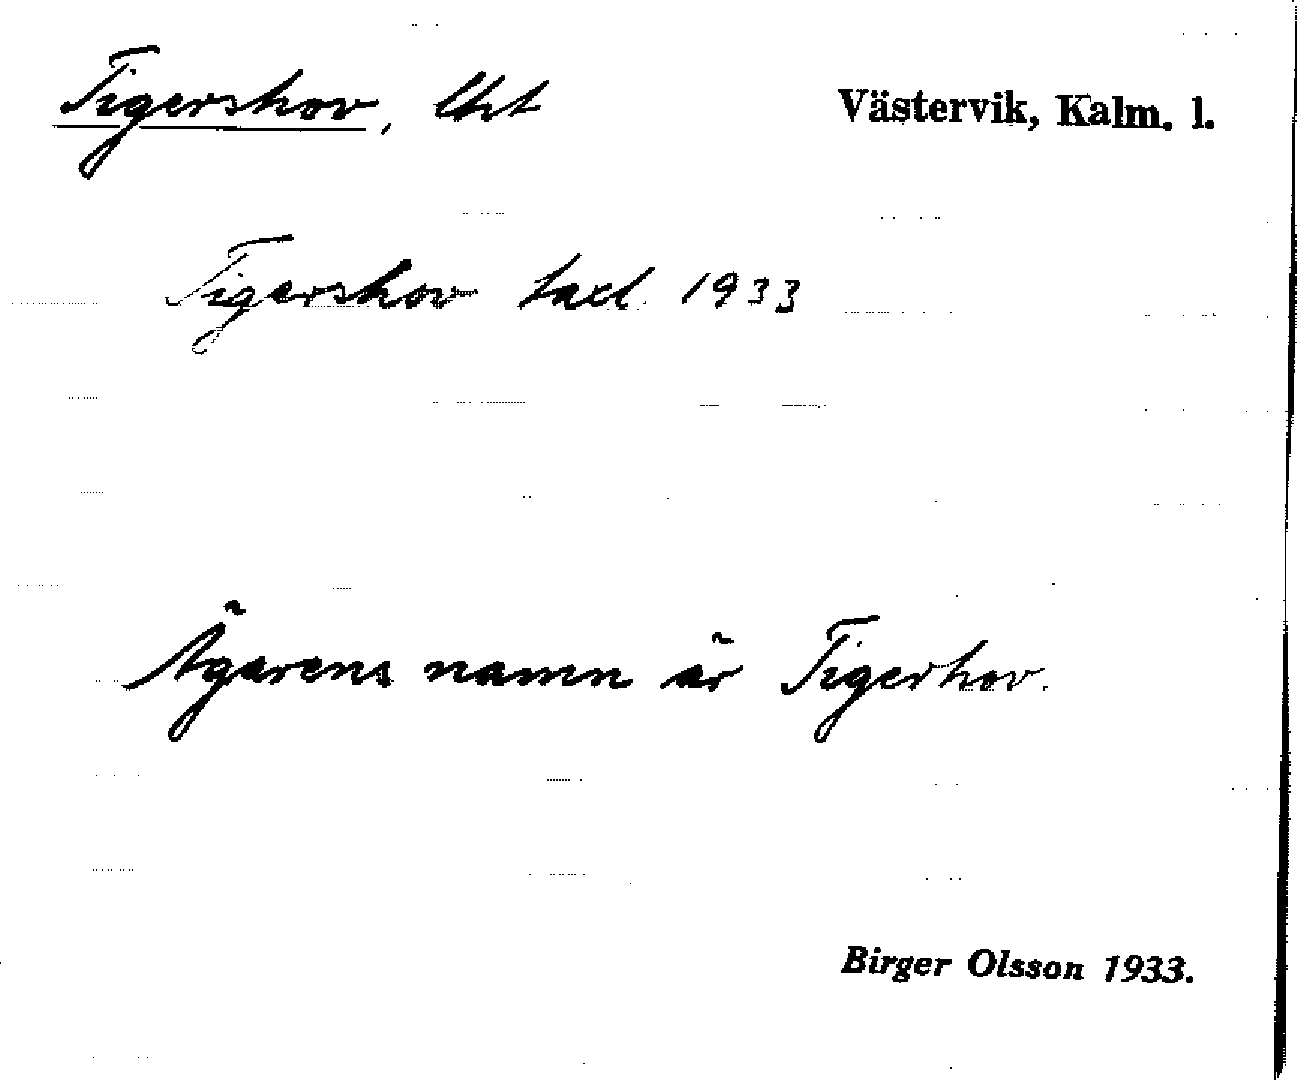 Tigershov, lht
Västervik, Kalm. l.
Tigershov taxl. 1933
Ägarens namn är Tigerhov.
Birger Olsson 1933.